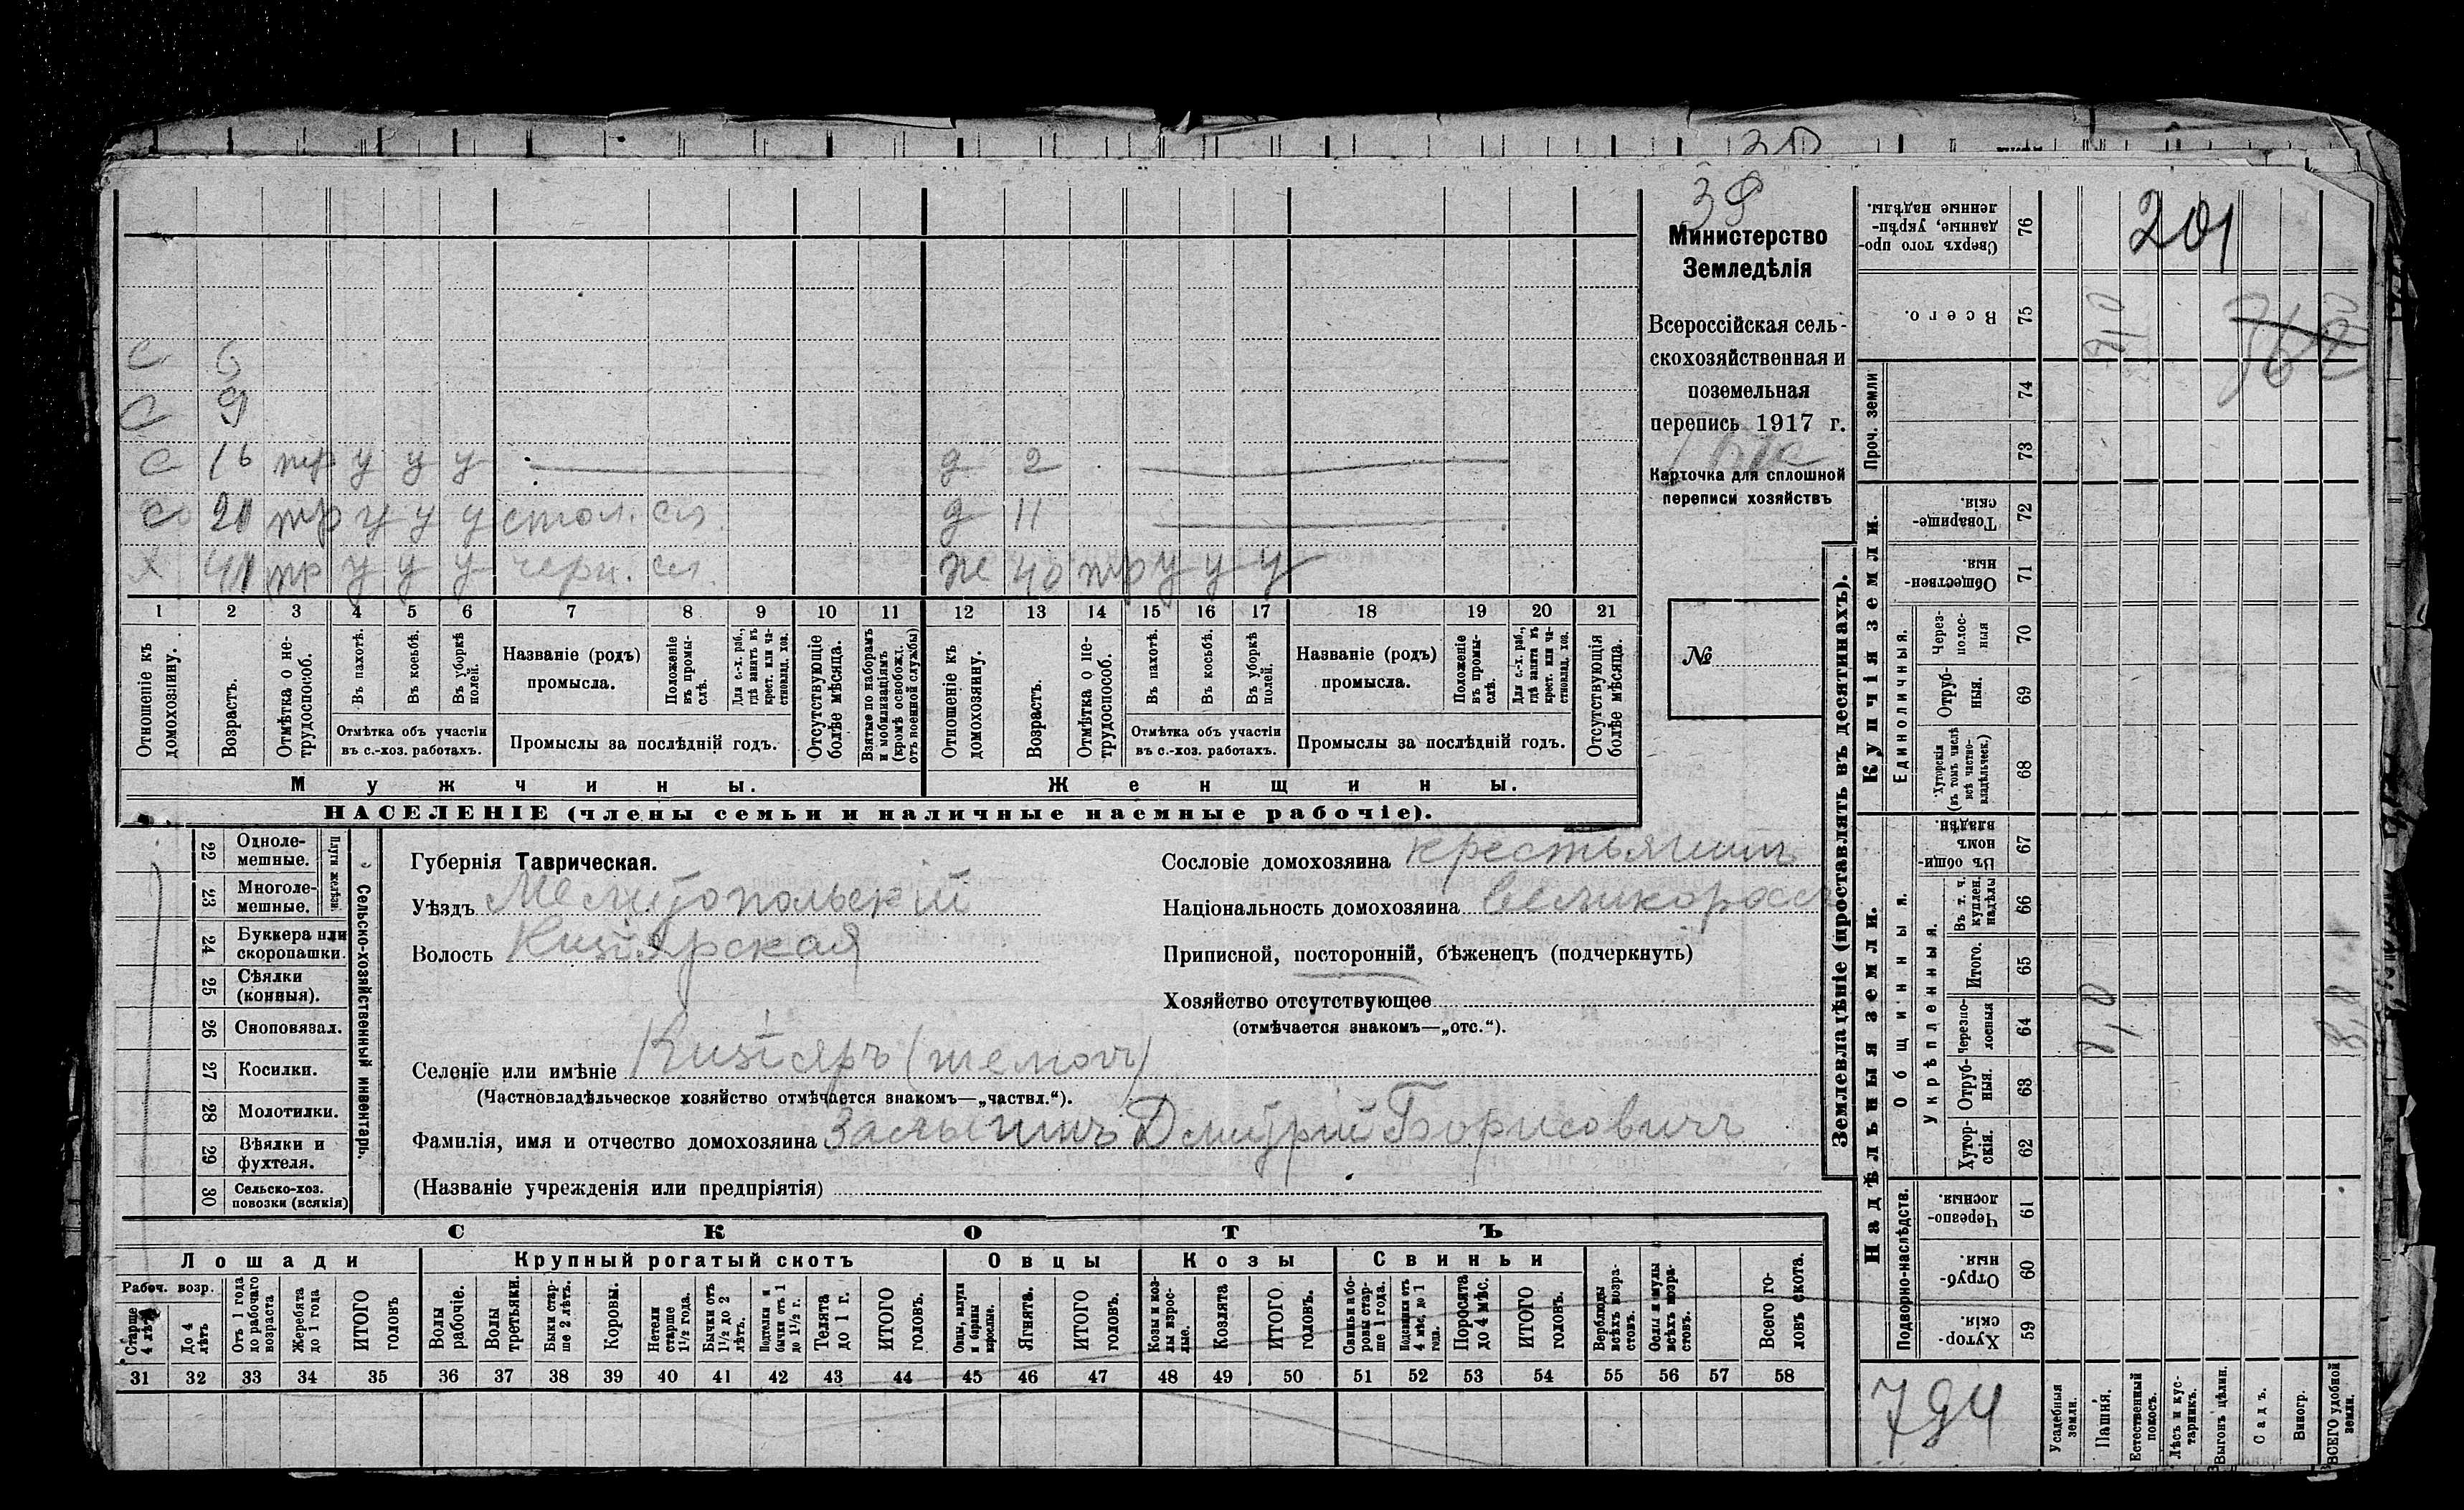 39
201
Министерство
Земледѣлія
Всероссійская сель-
скохозяйственная и
поземельная
перепись 1917 г.
Карточка для сплошной
переписи хозяйствъ
№
С 6
С 9
с 16 тр у у у д 2
с 21 тр у у у стол. сл. д 11
х 41 тр у у у черн. сл. ж 40 тр у у у
1 2 3 4 5 6 7 8 9 10 11 12 13 14 15 16 17 18 19 20 21
Отношеніе къ домохозяину.
Возрастъ.
Отмѣтка о не-трудоспособ.
Въ пахотѣ.
Въ косьбѣ.
Въ уборкѣ полей.
Отмѣтка объ участіи
въ с.-хоз. работахъ.
Названіе (родъ)
промысла.
Положеніе въ промы-слѣ.
Для с.-х. раб., гдѣ занятъ въ крест. или ча-стновлад. хоз.
Промыслы за послѣдній годъ.
Отсутствующіе болѣе мѣсяца.
Взятые по наборамъ и мобилизаціямъ (кромѣ освобожд. отъ военной службы)
Отношеніе къ домохозяину.
Возрастъ.
Отмѣтка о не-трудоспособ.
Въ пахотѣ.
Въ косьбѣ.
Въ уборкѣ полей.
Отмѣтка объ участіи
въ с.-хоз. работахъ.
Названіе (родъ)
промысла.
Положеніе въ промы-слѣ.
Для с.-х. раб., гдѣ занята въ крест. или ча-стновлад. хоз.
Промыслы за послѣдній годъ.
Отсутствующія болѣе мѣсяца.
Мужчины.
Женщины.
НАСЕЛЕНІЕ (члены семьи и наличные наемные рабочіе).
22 Одноле-мешные.
23 Многоле-мешные.
Плуги желѣзн.
24 Буккера или скоропашки.
25 Сѣялки (конныя).
26 Сноповязал.
27 Косилки.
28 Молотилки.
29 Вѣялки и фухтеля.
30 Сельско-хоз. повозки (всякія)
Сельско-хозяйственный инвентарь.
Губернія Таврическая.
Уѣздъ Мелитопольский
Волость Кизіярская
Селеніе или имѣніе Кизіяръ
(Частновладѣльческое хозяйство отмѣчается знакомъ—„частвл.“).
Фамилія, имя и отчество домохозяина Залыгинъ Дмитрій Борисовичъ
(Названіе учрежденія или предпріятія)
Сословіе домохозяина крестьянинъ
Національность домохозяина великоросс
Приписной, посторонній, бѣженецъ (подчеркнуть)
Хозяйство отсутствующее
(отмѣчается знакомъ—„отс.“).
СКОТЪ
Лошади
Крупный рогатый скотъ
Овцы
Козы
Свиньи
Рабоч. возр.
Старше 4 лѣтъ
До 4 лѣтъ
Отъ 1 года до рабочаго возраста
Жеребята до 1 года
ИТОГО головъ
Волы рабочіе.
Волы третьяки.
Быки стар-ше 2 лѣтъ.
Коровы.
Нетели старше 1½ года.
Бычки отъ 1½ до 2 лѣтъ.
Подтелки и бычки отъ 1 до 1½ г.
Телята до 1 г.
ИТОГО головъ.
Овцы, валухи и бараны взрослые.
Ягнята.
ИТОГО головъ.
Козы и коз-лы взрос-лые.
Козлята
ИТОГО головъ.
Свиньи и бо-ровы стар-ше 1 года.
Подсвинки отъ 4 мѣс. до 1 года.
Поросята до 4 мѣс.
ИТОГО головъ.
Верблюды всѣхъ возра-стовъ.
Ослы и мулы всѣхъ возра-стовъ.
Всего го-ловъ скота.
31 32 33 34 35 36 37 38 39 40 41 42 43 44 45 46 47 48 49 50 51 52 53 54 55 56 57 58
Землевладѣніе (проставлять въ десятинахъ).
Сверхъ того про-данные, укрѣп-ленные надѣлы. 76
Всего. 75
Проч. земли 74
73
Купчія земли.
Товарище-скія 72
Обществен-ныя. 71
Единоличныя.
Через-полос-ныя 70
Отруб-ныя. 69
Хуторскія (въ томъ числѣ всѣ частно-владѣльческ.) 68
Надѣльныя земли.
Общинныя.
Въ общи-номъ владѣн. 67
Укрѣпленныя.
Въ т. ч. куплен. надѣлы 66
Итого. 65
Черезпо-лосныя 64
Отруб-ныя. 63
Хутор-скія. 62
Подворно-наслѣдств.
Черезпо-лосныя. 61
Отруб-ныя. 60
Хутор-скія. 59
8,0
794
Усадебныя земли.
Пашня.
Естественный покосъ.
Лѣсъ и кус-тарникъ.
Выгонъ цѣлин.
Садъ.
Виногр.
ВСЕГО удобной земли.